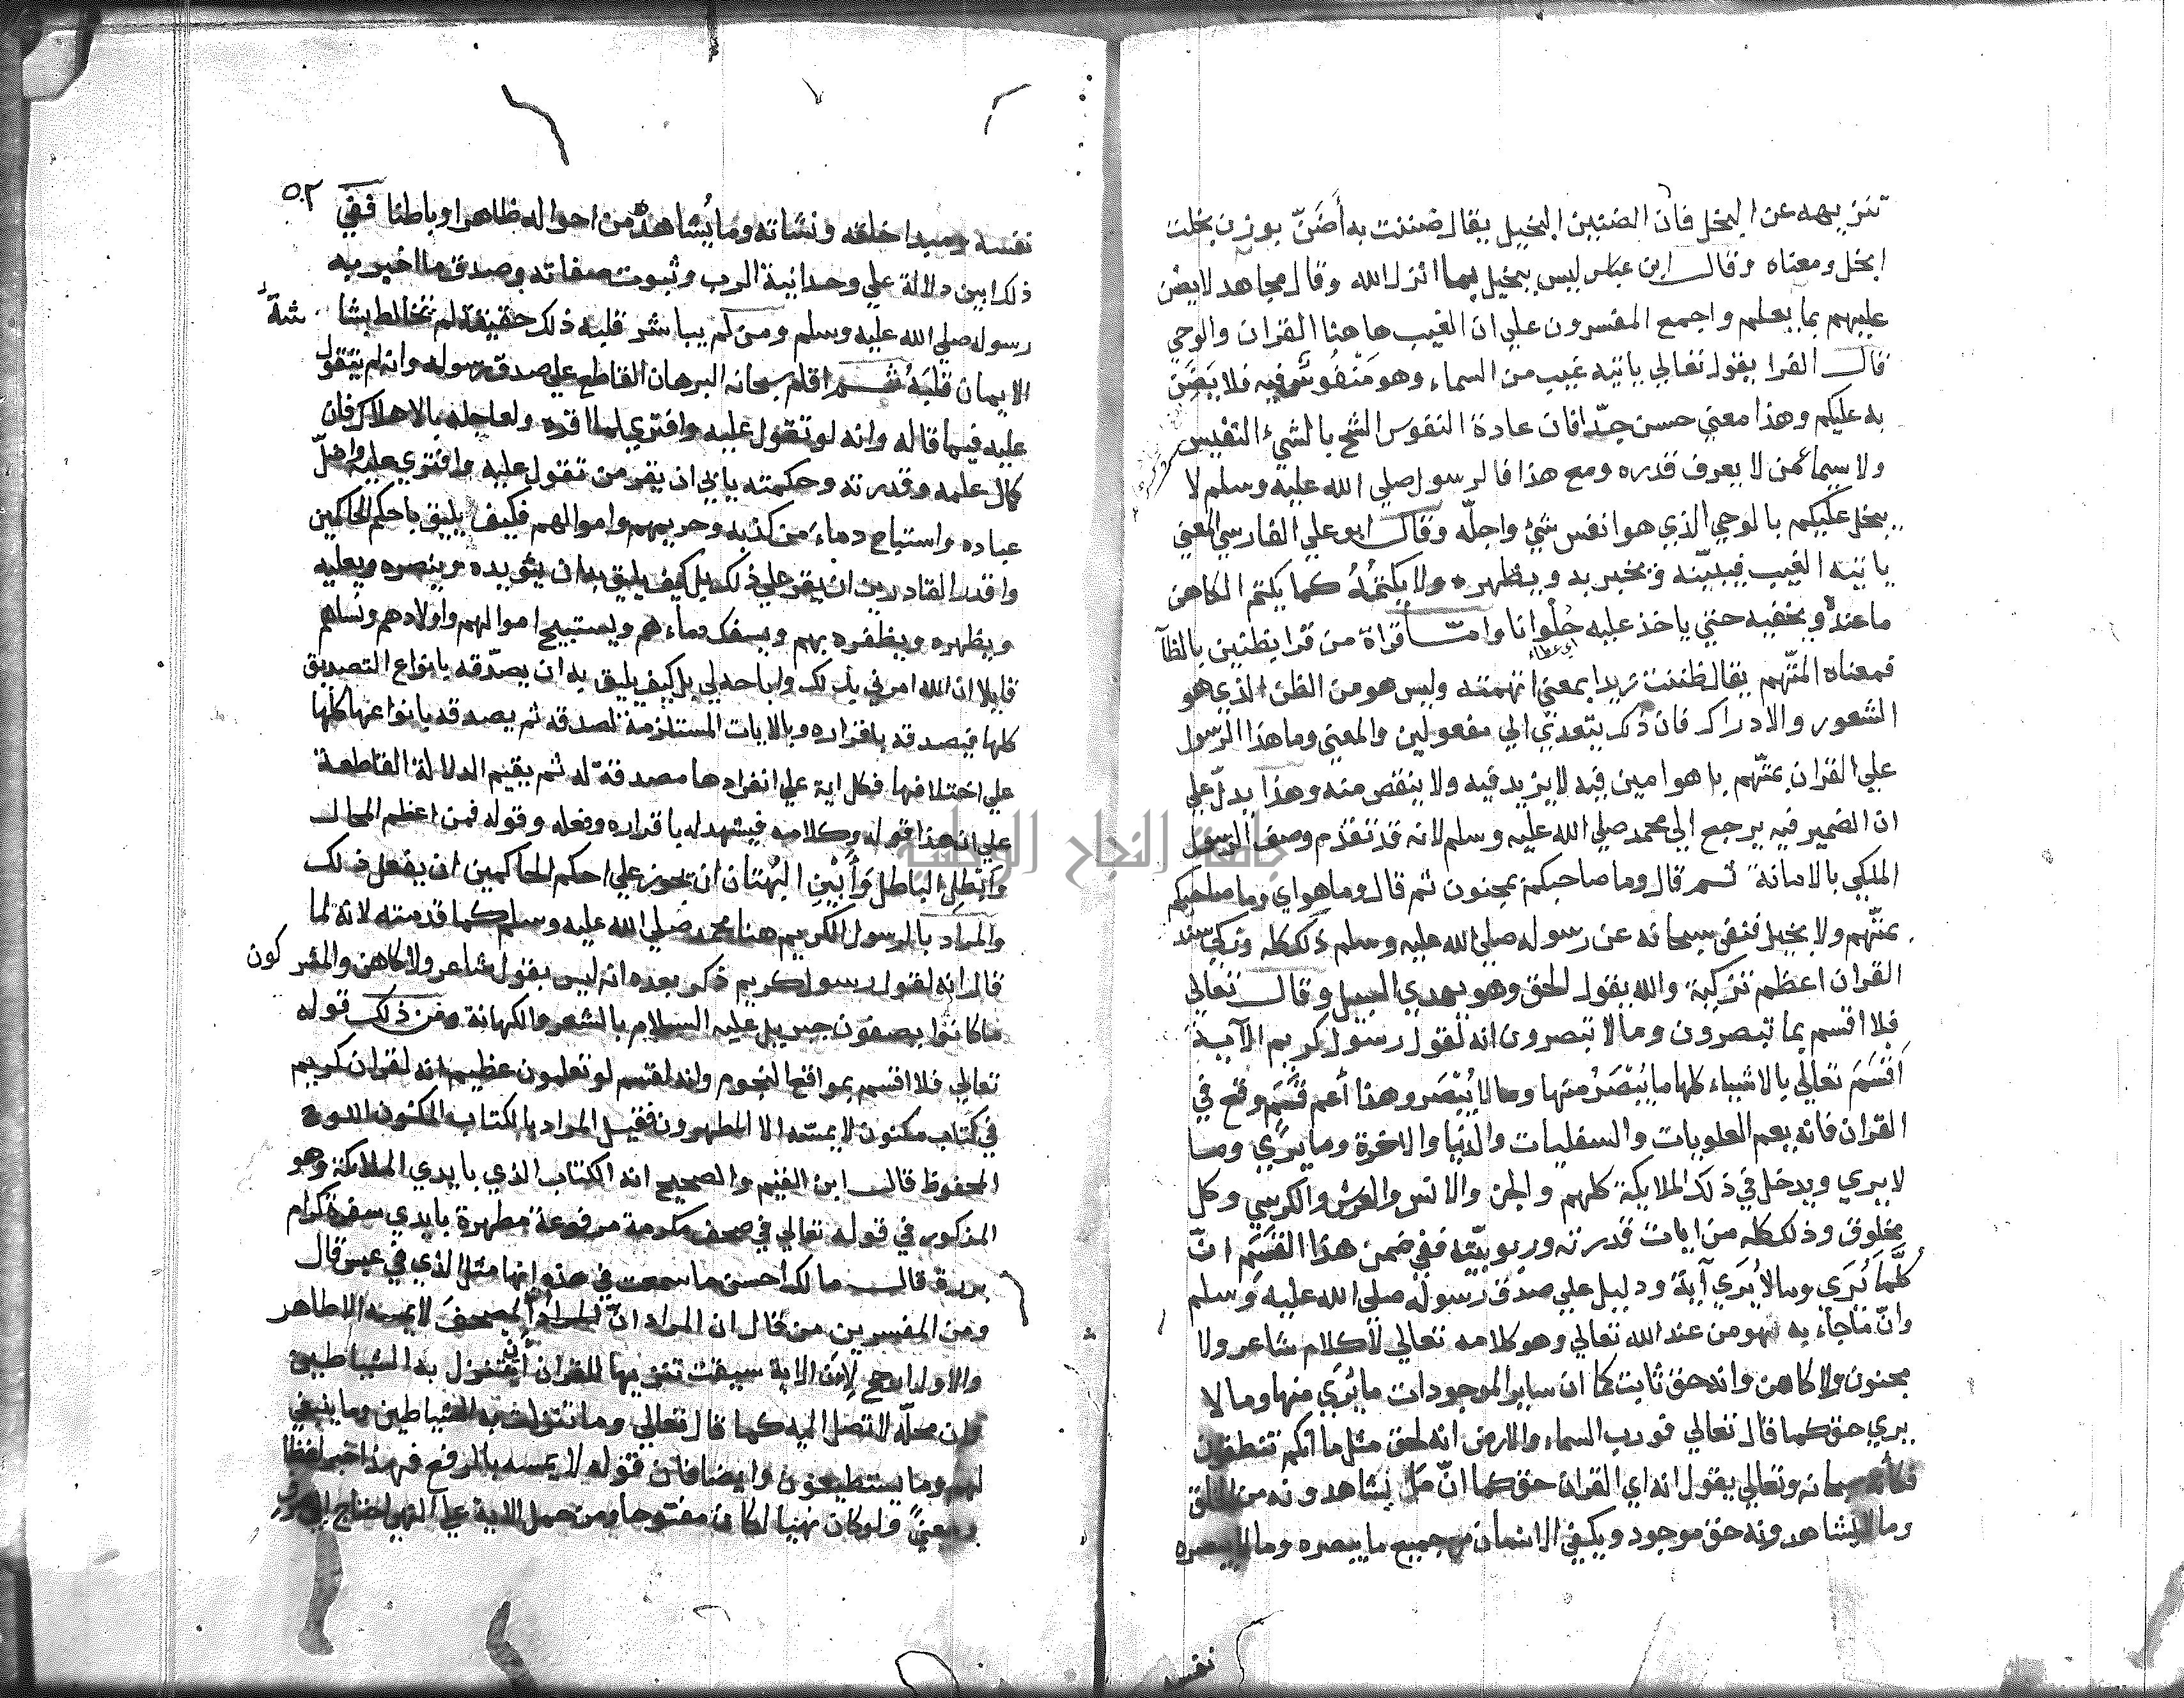 تنزيهه عن البخل فان الضنين البخيل يقال ضننت به أضَنّ بوزن بخلت
ابخل ومعناه وقال ابن عباس ليس ببخيل بما انزل الله وقال مجاهد لا يضن
عليهم بما يعلم واجمع المفسرون علي ان الغيب هاهنا القران والوحي
قال الفرا يقول تعالي ياتيه غيب من السماء وهو مَنْفُوسٌ فيه فلا يَضَنّ
به عليكم وهذا معني حسن جدّا فان عادة النفوس الشح بالشيء النفيس
ولا سيما ممن لا يعرف قدره ومع هذا فالرسول صلي الله عليه وسلم لا
يبخل عليكم بالوحي الذي هو انفس شيء واجلّه وقال ابو علي الفارسي المعني
ياتيه الغيب فيبيّنه ويخبر به ويظهره ولا يكتمُهُ كما يكتم الكاهن
ما عنده ويخفيه حتي ياخذ عليه حُلْوانا وامّا قراة من قرا بظنين بالظا
اي عطاء
فمعناه المتّهم يقال ظننت زيدا بمعني اتهمته وليس هو من الظن الذي هو
الشعور والادراك فان ذك يتعدي الي مفعولين والمعني وما هذا الرسول
علي القران بمتّهم بل هو امين فيه لا يزيد فيه ولا ينقص منه وهذا يدلّ علي
ان الضمير فيه يرجع الي محمد صلي الله عليه وسلم لانه قد تقدم وصف الرسول
الملكي بالامانة ثم قال وما صاحبكم بمجنون ثم قال وما هو اي وما صاحبكم
بمتّهم ولا بخيل فنفي سبحانه عن رسوله صلي الله عليه وسلم ذلك كله وزكي سند
القران اعظم تزكية والله يقول الحق وهو يهدي السبيل وقال تعالي
فلا اقسم بما تبصرون وما لا تبصرون انه لقول رسول كريم الآية
أقسَمَ تعالي بالاشياء كلها ما يُبْصَرُ منها وما لا يُبْصَر وهذا أعم قَسَمٍ وقع في
القران فانه يعم العلويات والسفليات والدنيا والاخرة وما يُرَي وما
لا يري ويدخل في ذلك الملايكة كلهم والجن والانس والعرش والكرسي وكل
مخلوق وذلك كله من ايات قدرته وربوبيّته ففي ضمن هذا القَسَم انّ
كلَّمَا يُرَي وما لا يُرَي آية ودليل علي صدق رسوله صلي الله عليه وسلم
وانّ ما جاء به هو من عند الله تعالي وهو كلامه تعالي لا كلام شاعر ولا
مجنون ولا كاهن وانه حق ثابت كما ان ساير الموجودات ما يُرَي منها وما لا
يري حق كما قال تعالي فورب السماء والارض انه لحق مثل ما انكم تنطقون
فكأنه سبحانه وتعالي يقول انه اي القران حق كما انّ ما يشاهدونه من الخلق
وما لا يشاهدونه حق موجود ويكفي الانسان من جميع ما يبصره وما لا يبصره
نفسه
٥٢
نفسه ومبدا خلقه ونشاته وما يُشاهدُ من احواله ظاهرا وباطنا ففي
ذلك ابين دلالة علي وحدانية الرب وثبوت صفاته وصدق ما اخبر به
رسوله صلي الله عليه وسلم ومن لم يباشر قلبه ذلك حقيقة لم تخالط بشا شةُ
الايمان قلبَهُ ثم اقام سبحانه البرهان القاطع علي صدق رسوله وانه لم يتقول
عليه فيما قاله وانه لو تقول عليه وافتري لما اقره ولعاجله بالاهلاك فان
كمال علمه وقدرته وحكمته يابي ان يقر من تقول عليه وافتري عليه واضلّ
عباده واستباح دماء من كذبه وحريمهم واموالهم فكيف يليق باحكم الحاكمين
واقدر القادرين ان يقر علي ذلك بل كيف يليق به ان يئويده وينصره ويعليه
ويظهره ويظفره بهم ويسفك دماءهم ويستبيح اموالهم واولادهم ونساهم
قايلا ان الله امرني بذلك واباحه لي بل كيف يليق به ان يصدّقه بانواع التصديق
كلها فيصدقه باقراره وبالايات المستلزمة لصدقه ثم يصدقه بانواعها كلها
علي اختلافها فكل اية علي انفرادها مصدقة له ثم يقيم الدلالة القاطعة
علي ان هذا قوله وكلامه فيشهد له باقراره وفعله وقوله فمن اعظم المحال
وأبطل الباطل وَأَبْيَنِ البُهتان ان يجوز علي احكم الحاكمين ان يفعل ذلك
والمراد بالرسول الكريم هنا محمد صلي الله عليه وسلم كما قدمته لانه لما
قال انه لقول رسول كريم ذكر بعده انه ليس بقول شاعر ولا كاهن والمشر كون
ما كانوا يصفون جبريل عليه السلام بالشعر والكهانة ومن ذلك قوله
تعالي فلا اقسم بمواقع النجوم وانه لقسم لو تعلمون عظيم انه لقران كريم
في كتاب مكنون لا يمسّه الا المطهرون فقيل المراد بالكتاب المكنون اللوح
المحفوظ قال ابن القيم والصحيح انه الكتاب الذي بايدي الملايكة وهو
المذكور في قوله تعالي في صحف مكرمة مرفوعة مطهرة بايدي سفرة كرام
بررة قال مالك احسن ما سمعت في هذه انها مثل الذي في عبس قال
ومن المفسرين من قال ان المراد انّ المصحفَ لا يمسه الا طاهر
والاول ارجح لِأَن الاية سيقت تنزيها للقران أن تتنزل به الشياطين
وان محلّه لا تصل اليه كما قال تعالي وما تنزلت به الشياطين وما ينبغي
لهم وما يستطيعون وايضا فان قوله لا يمسه بالرفع فهذا خبر لفظا
ومعنيً ولو كان نهيا لكان مفتوحا ومن حمل الاية علي النهي احتاج الي
جامعة النجاح الوطنية